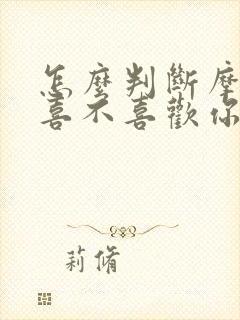 怎麼判斷摩
喜不喜歡你
莉脩